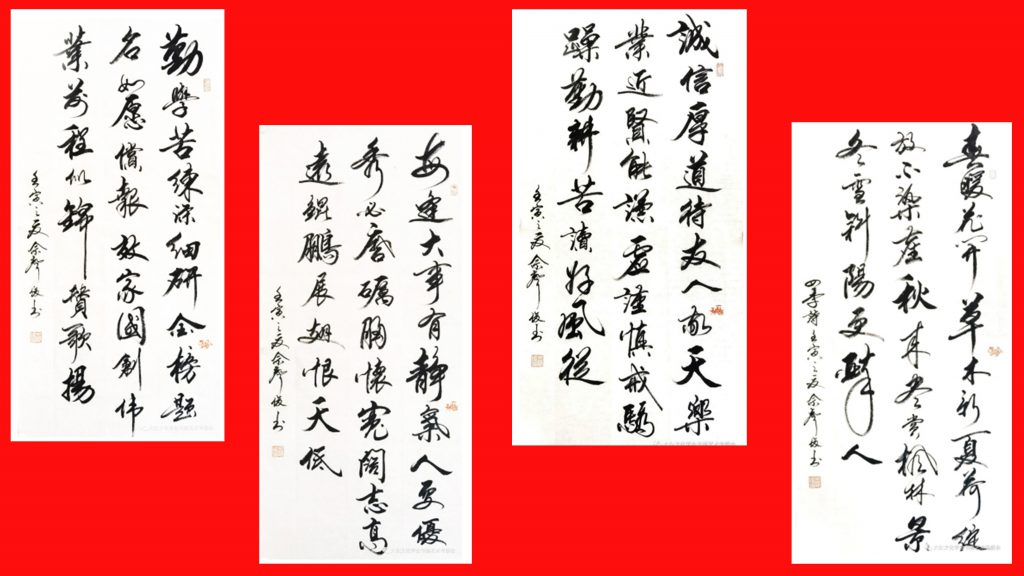 勤學苦練深細研金榜題
名如愿償報效家國創伟
業前程似錦贊歌揚
壬寅之夏余孝俊书
每逢大事有静氣人更優
秀必磨礪胸懷宽闊志高
遠鯤鹏展翅恨天低
壬寅之夏余孝俊书
誠信厚道待友人敬天樂
業近賢能謙虚謹慎戒驕
躁勤耕苦讀好風從
壬寅之夏余孝俊书
春暖花開草木新夏荷綻
放不染塵秋来尽賞楓林景
冬雪斜陽更醉人
四季詩壬寅之夏余孝俊书